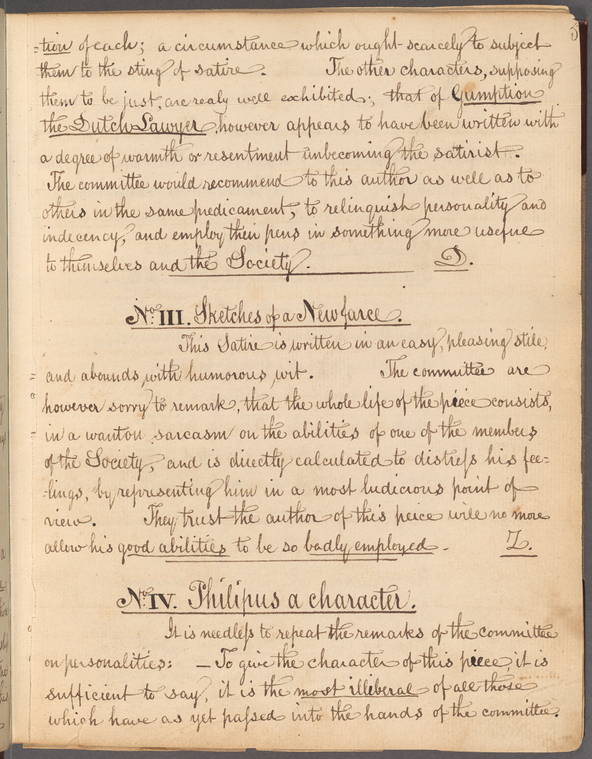 =tion of each; a circumstance which ought scarcely to subject
them to the sting of satire. The other characters, supposing
them to be just, are realy well exhibited; that of Gumption
the Dutch Lawyer, however appears to have been written with
a degree of warmth or resentment unbecoming the satirist.
The committee would recommend to this author as well as to
others in the same predicament, to relinquish personality and
indecency, and employ their pens in something more useful
to themselves and the Society. D.
No. III. Sketches of a New farce.
This Satire is written in an easy, pleasing stile,
and abounds with humorous wit. The committee are
however sorry to remark, that the whole life of the piece consists,
in a wanton sarcasm on the abilities of one of the members
of the Society, and is directly calculated to distress his fee-
-lings, by representing him in a most ludicious point of
view. They trust the author of this peice will no more
allow his good abilities to be so badly employed. Z.
No. IV. Philipus a character.
It is needless to repeat the remarks of the committee
on personalities: — To give the character of this piece, it is
sufficient to say, it is the most illiberal of all those
which have as yet passed into the hands of the committee.